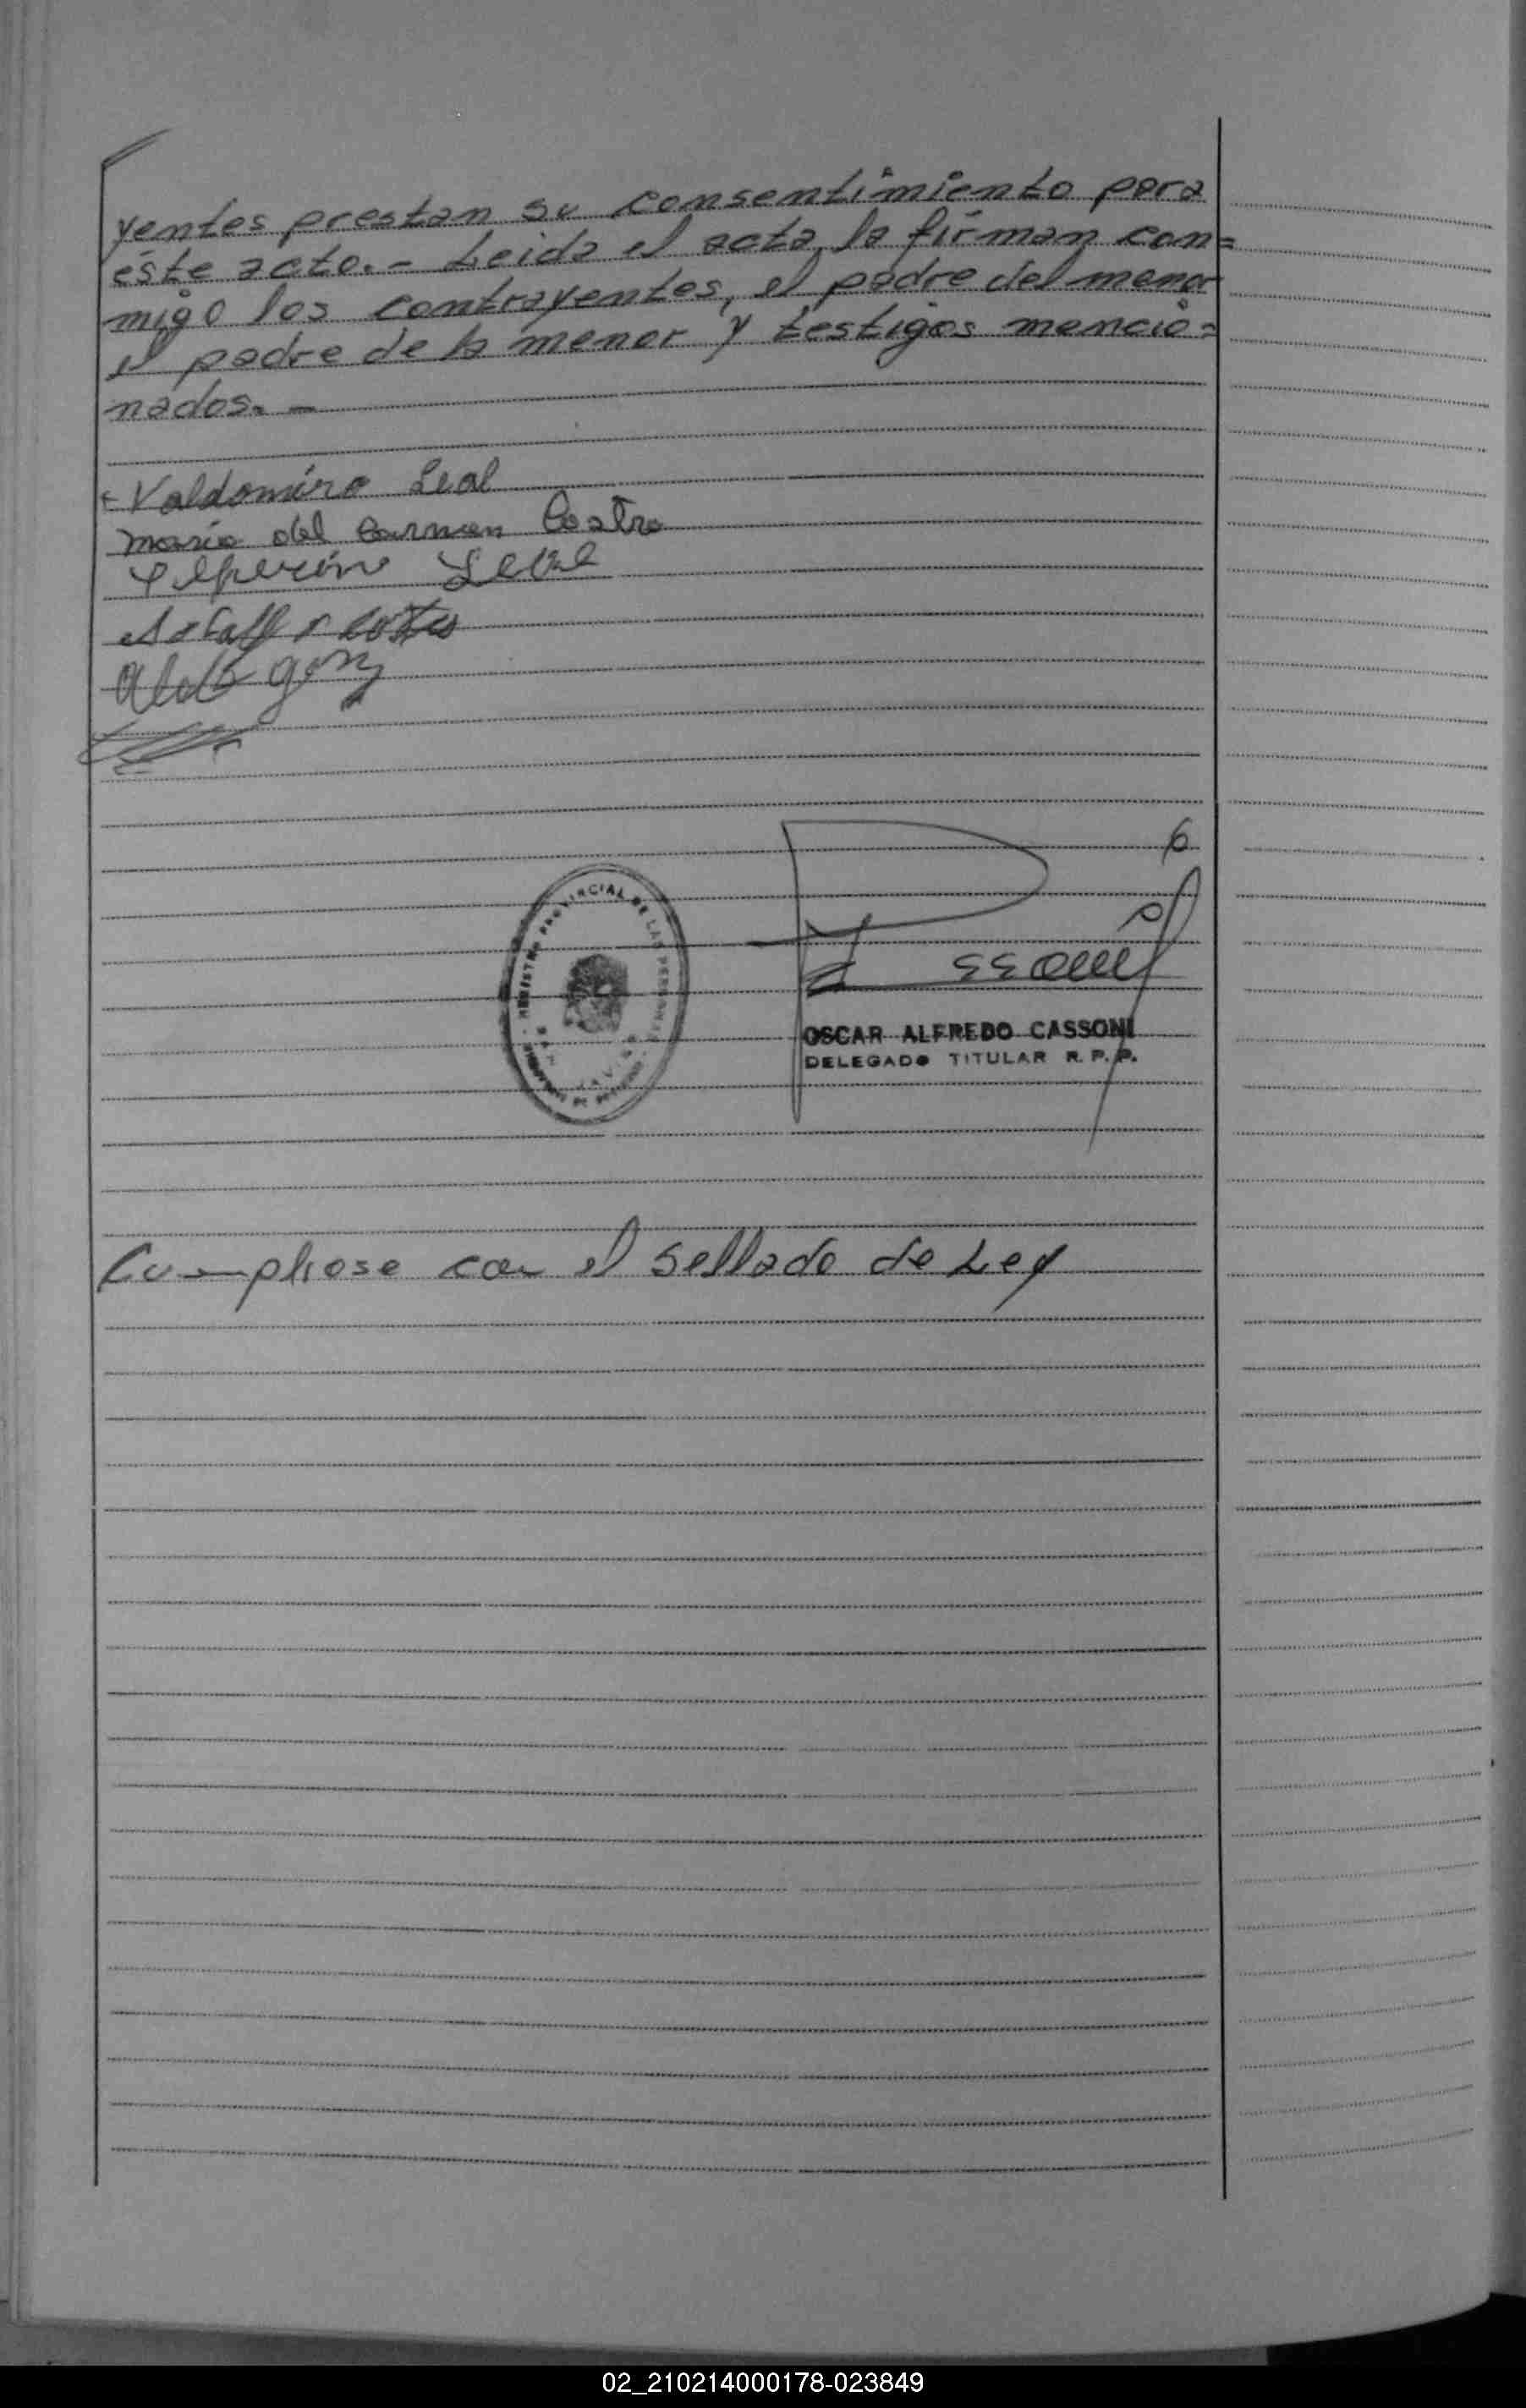 yentes prestan su consentimiento para
éste acto.- Leida el acta, la firman con=
migo los contrayentes, el padre del menor
el padre de la menor y testigos mencio=
nados. -
Valdomiro Leal
Maria del Carmen Castro
Leal
REGISTRO PROVINCIAL DE LAS PERSONAS
OSCAR ALFREDO CASSONI
DELEGADO TITULAR R. P. P.
Cumpliose con el sellado de Ley
02_210214000178-023849